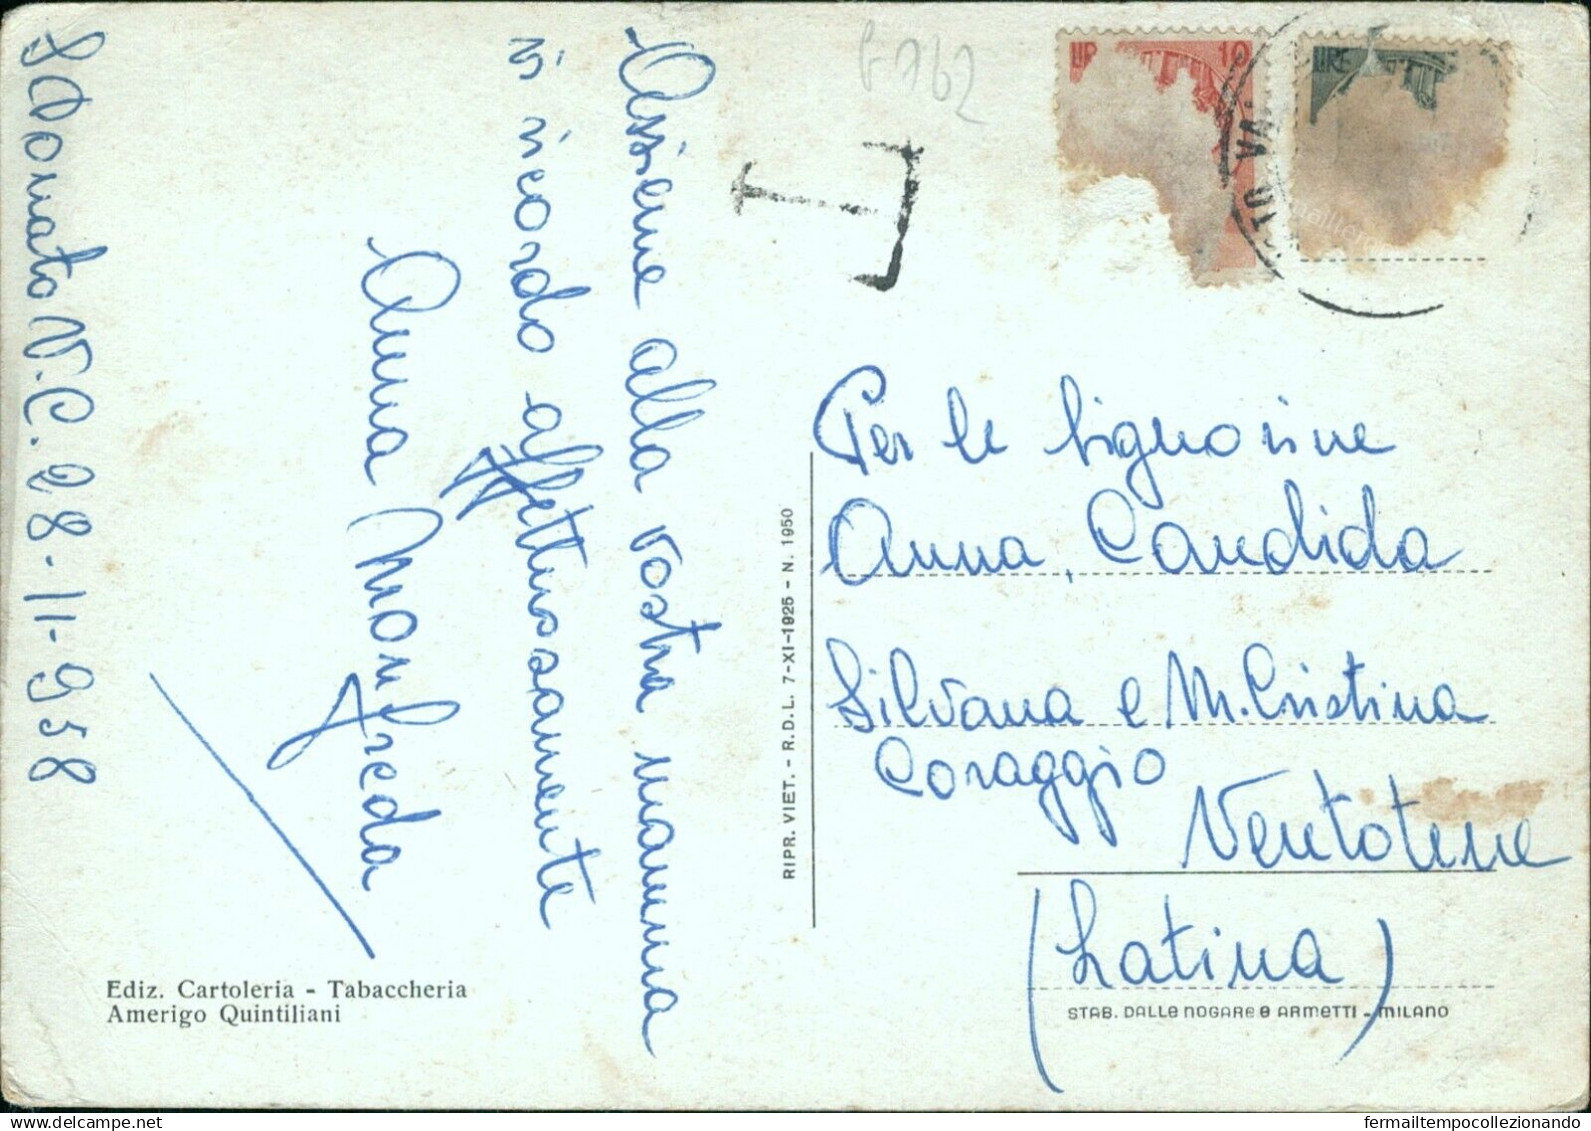 S. Donato V.C. 28-11-958
Assieme alla vostra mamma
vi ricordo affettuosamente
Anna Manfreda
Ediz. Cartoleria - Tabaccheria
Amerigo Quintiliani
RIPR. VIET. - R.D.L. 7-XI-1925 - N. 1950
T
LIRE 10
LIRE
Per le Signorine
Anna, Candida
Silvana e M. Cristina
Coraggio
Ventotene
(Latina)
STAB. DALLE NOGARE E ARMETTI - MILANO
fermailtempocollezionando